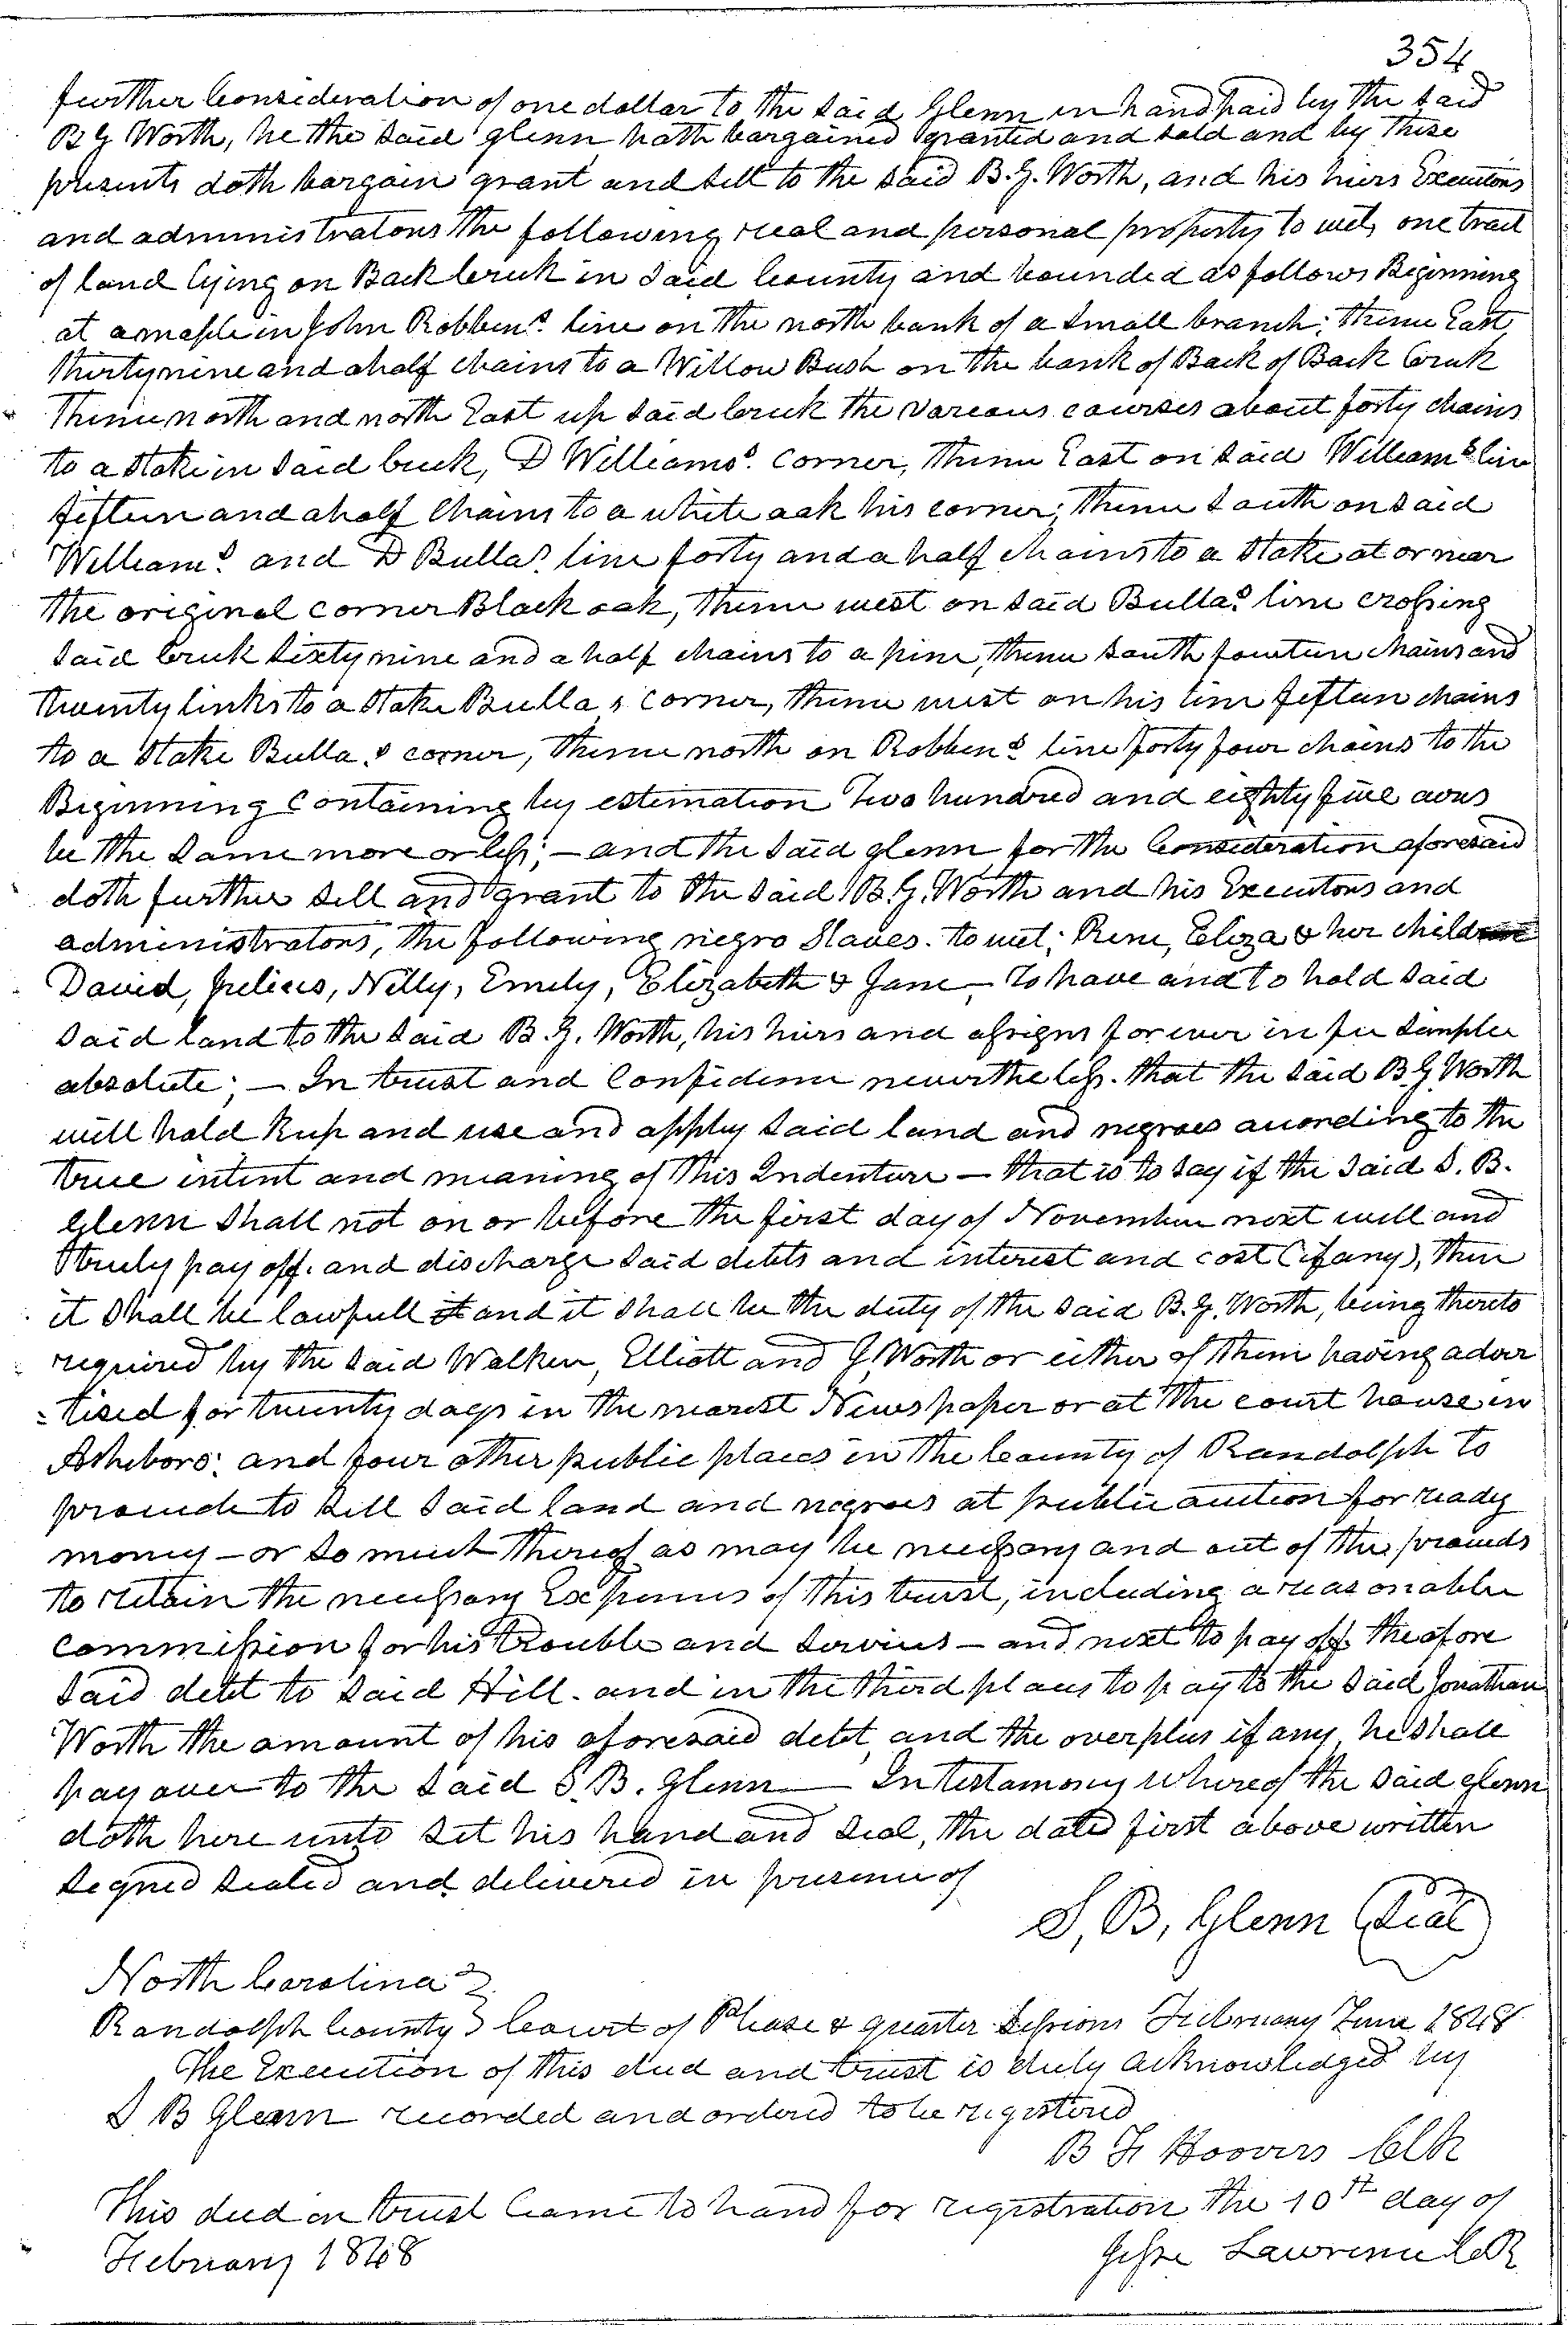 354
further Consideration of one dollar to the said Glenn in hand paid by the said
B G Worth, he the said glenn hath bargained granted and sold and by these
presents doth bargain grant and sell to the said B. G. Worth, and his heirs Executors
and administrators the following real and personal property to wit, one tract
of land lying on Back Creek in said County and bounded as follows Beginning
at a maple in John Robbins line on the north bank of a small branch; thence East
thirty nine and a half chains to a Willow Bush on the bank of Back of Back Creek
Thence north and north East up said Creek the various courses about forty chains
to a stake in said creek, D Williams. corner, thence East on said Williams line
fifteen and a half chains to a white oak his corner; thence South on said
Williams and D Bullas line forty and a half chains to a stake at or near
the original corner Black oak, thence west on said Bullas line crossing
said Creek sixty nine and a half chains to a pine, thence south fourteen chains and
twenty links to a stake Bulla,s corner, thence west on his line fifteen chains
to a stake Bulla,s corner, thence north on Robbins line forty four chains to the
Beginning Containing by estimation Two hundred and eighty five acres
be the same more or less; – and the said glenn for the Consideration aforesaid
doth further sell and grant to the said B. G. Worth and his Executors and
administrators, the following negro Slaves. to wit; Rene, Eliza & her children
David, Julius, Nelly, Emily, Elizabeth & Jane – To have and to hold said
said land to the said B. G. Worth, his heirs and assigns forever in fee simple
absolute; – In trust and Confidence nevertheless. that the said B G Worth
will hold keep and use and apply said land and negroes according to the
true intent and meaning of this Indenture – that is to say if the said S. B.
Glenn shall not on or before the first day of November next well and
truly pay off. and discharge said debts and interest and cost (if any), then
it shall be lawfull it and it shall be the duty of the said B. G. Worth, being thereto
required by the said Walker, Elliott and J. Worth or either of them having adver
=tised for twenty days in the nearest Newspaper or at the court house in
Asheboro; and four other public places in the County of Randolph to
proceede to sell said land and negroes at public auction for ready
money – or so much thereof as may be necessary and out of the proceeds
to retain the necessary Expenses of this trust, including a reasonable
commission for his trouble and services – and next to pay off the afore
said debt to said Hill. and in the third place to pay to the said Jonathan
Worth the amount of his aforesaid debt, and the overplus if any, he shall
pay over to the said S. B. Glenn – In testamony whereof the said glenn
doth here unto set his hand and seal, the date first above written
signed sealed and delivered in presence of
S, B, Glenn (Seal)
North Carolina }
Randolph County } Court of Please & quarter Sessions February Term 1848
The Execution of this deed and trust is duly acknowledged by
S B Glenn recorded and ordered to be registered
B F Hoovers Clk
This deed in trust Came to hand for registration the 10th day of
February 1848
Jesse Lawrence